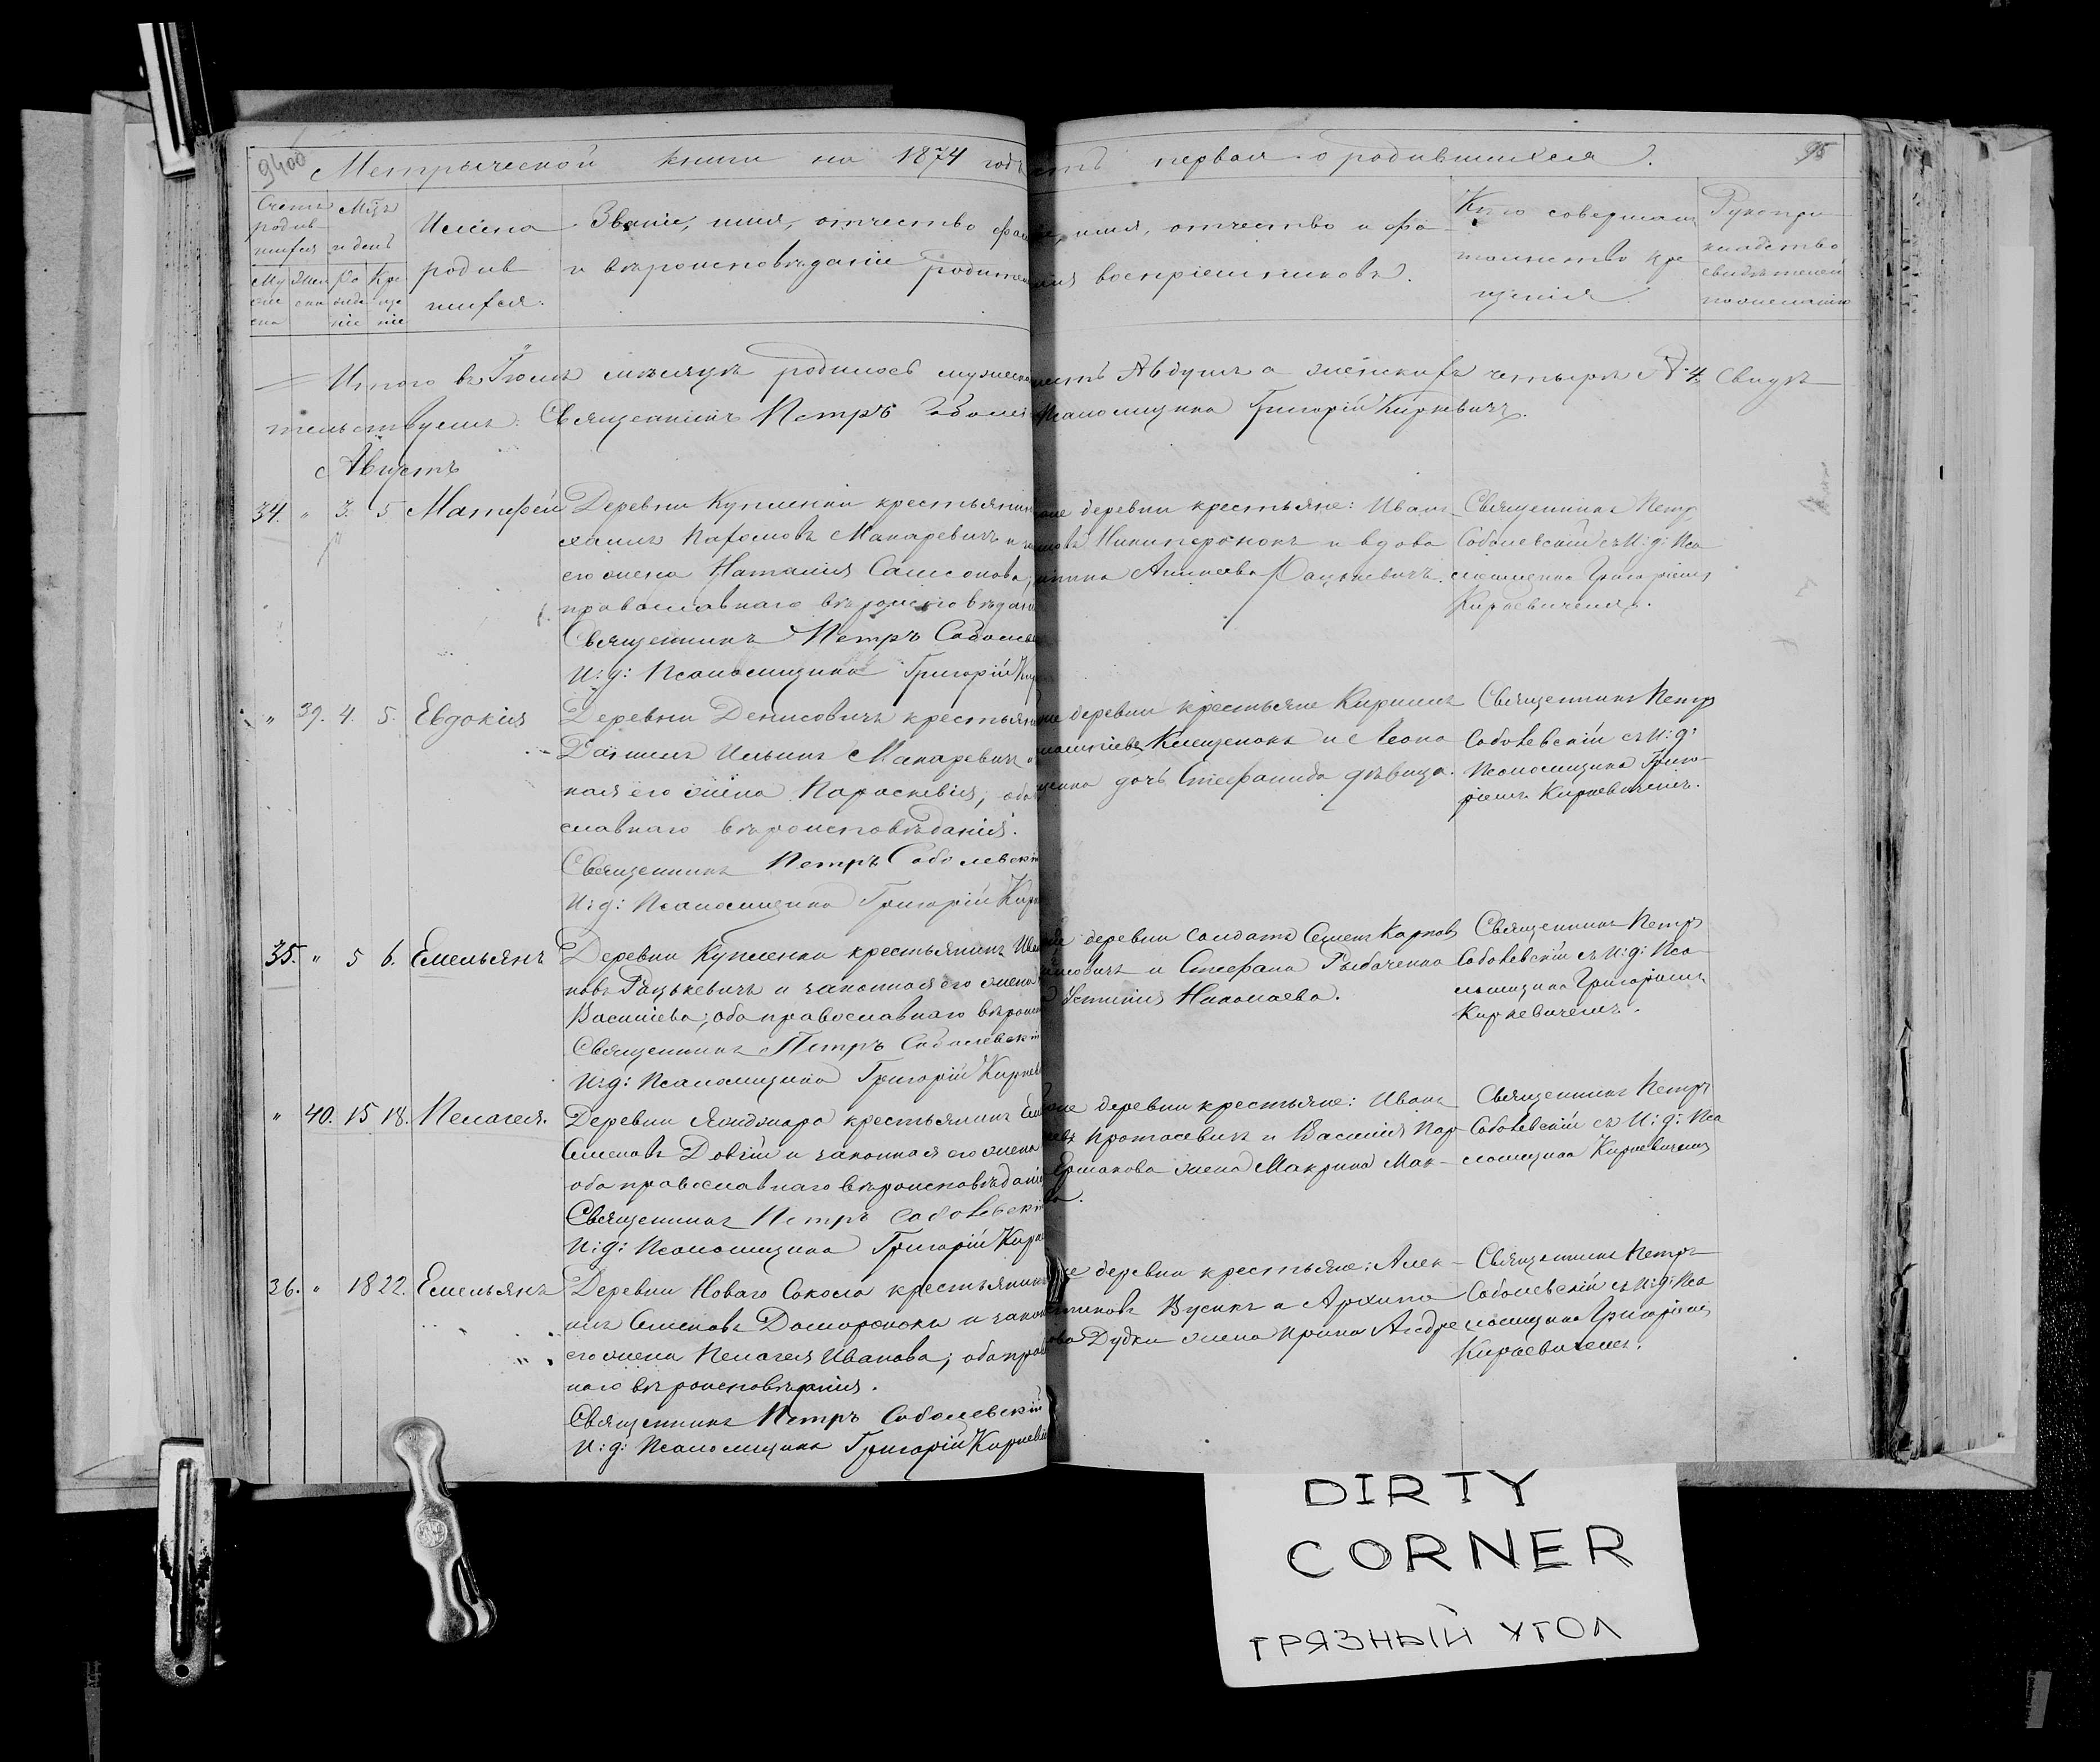 9400
Метрической книги на 1874 годъ
сть первая о родившихся.
95
Счетъ родив-шихся
Мцъ и день
Имена родив шихся.
Званіе, имя, отчество фам
и вѣроисповѣданіе родител
имя, отчество и фа
воспріемниковъ.
Кто совершал
таинство кре
щенія.
Рукопри
кладство
свидѣтелей
по желанію
Му же ска
Жен ска
Ро жде ніе
Кре ще ніе
Итого въ Іюлѣ мѣсяцѣ родилось мужеска
четыре 4. Свидѣ
тельствуемъ: Священникъ Петръ Собол
Псаломщика Григорій Киркевичъ.
Августъ
34. " 3. 5 Матфей
Деревни Купленки крестьянин
Макаревичъ и
его жена Наталія Самсонова,
православнаго вѣроисповѣдан
Священникъ Петръ Соболев
И: д: Псаломщика Григорій Кир
деревни крестьяне: Иван
и вдова
Священникъ Петр
Соболевскій съ И: д: Пса
ломщика Григоріемъ
Киркевичемъ.
" 39. 4. 5. Евдокія
Деревни Денисовичъ крестьян
Даніилъ Ильинъ Макаревичъ
ная его жена Параскевія; оба
славнаго вѣроисповѣданія.
Священникъ Петръ Соболевскі
И: д: Псаломщика Григорій Кирк
деревни крестьяне Кирилл
Клещенокъ и Леона
дочь Стефанида дѣвица.
Священникъ Петр
Соболевскій съ И: д:
Псаломщика Григо-
ріемъ Киркевичемъ.
35. " 5 6. Емельянъ
Деревни Купленки крестьянинъ Ива
новъ Рацькевичъ и законная его жена
Василіева; оба православнаго вѣроис
Священникъ Петръ Соболевскі
И: д: Псаломщика Григорій Киркев
деревни солдатъ Семенъ Карпов
и Стефана Рыбаченка
Устинія Николаева.
Священникъ Петр
Соболевскій съ И: д: Пса
ломщика Григоріемъ
Киркевичемъ.
" 40. 15 18. Пелагея.
Деревни крестьянинъ
Семеновъ Довгій и законная его жена
оба православнаго вѣроисповѣдані
Священникъ Петръ Соболевскі
И: д: Псаломщика Григорій Кирк
деревни крестьяне: Иванъ
Протасевичъ и Василія Пар
Ермакова жена Макрина Мак-
Священникъ Петръ
Соболевскій съ И: д: Пса
ломщика Киркевичемъ
36. " 18 22. Емельянъ
Деревни Новаго Сокола крестьянинъ
Семеновъ и закон
его жена Пелагея Иванова; оба прав
наго вѣроисповѣданія.
Священникъ Петръ Соболевскій
И: д: Псаломщика Григорій Киркеви
деревни крестьяне: Алек-
Бусикъ и Архипа
Дудки жена Ирина Андре
Священникъ Петръ
Соболевскій съ И: д: Пса
ломщика Григоріемъ
Киркевичемъ.
DIRTY
CORNER
ГРЯЗНЫЙ УГОЛ